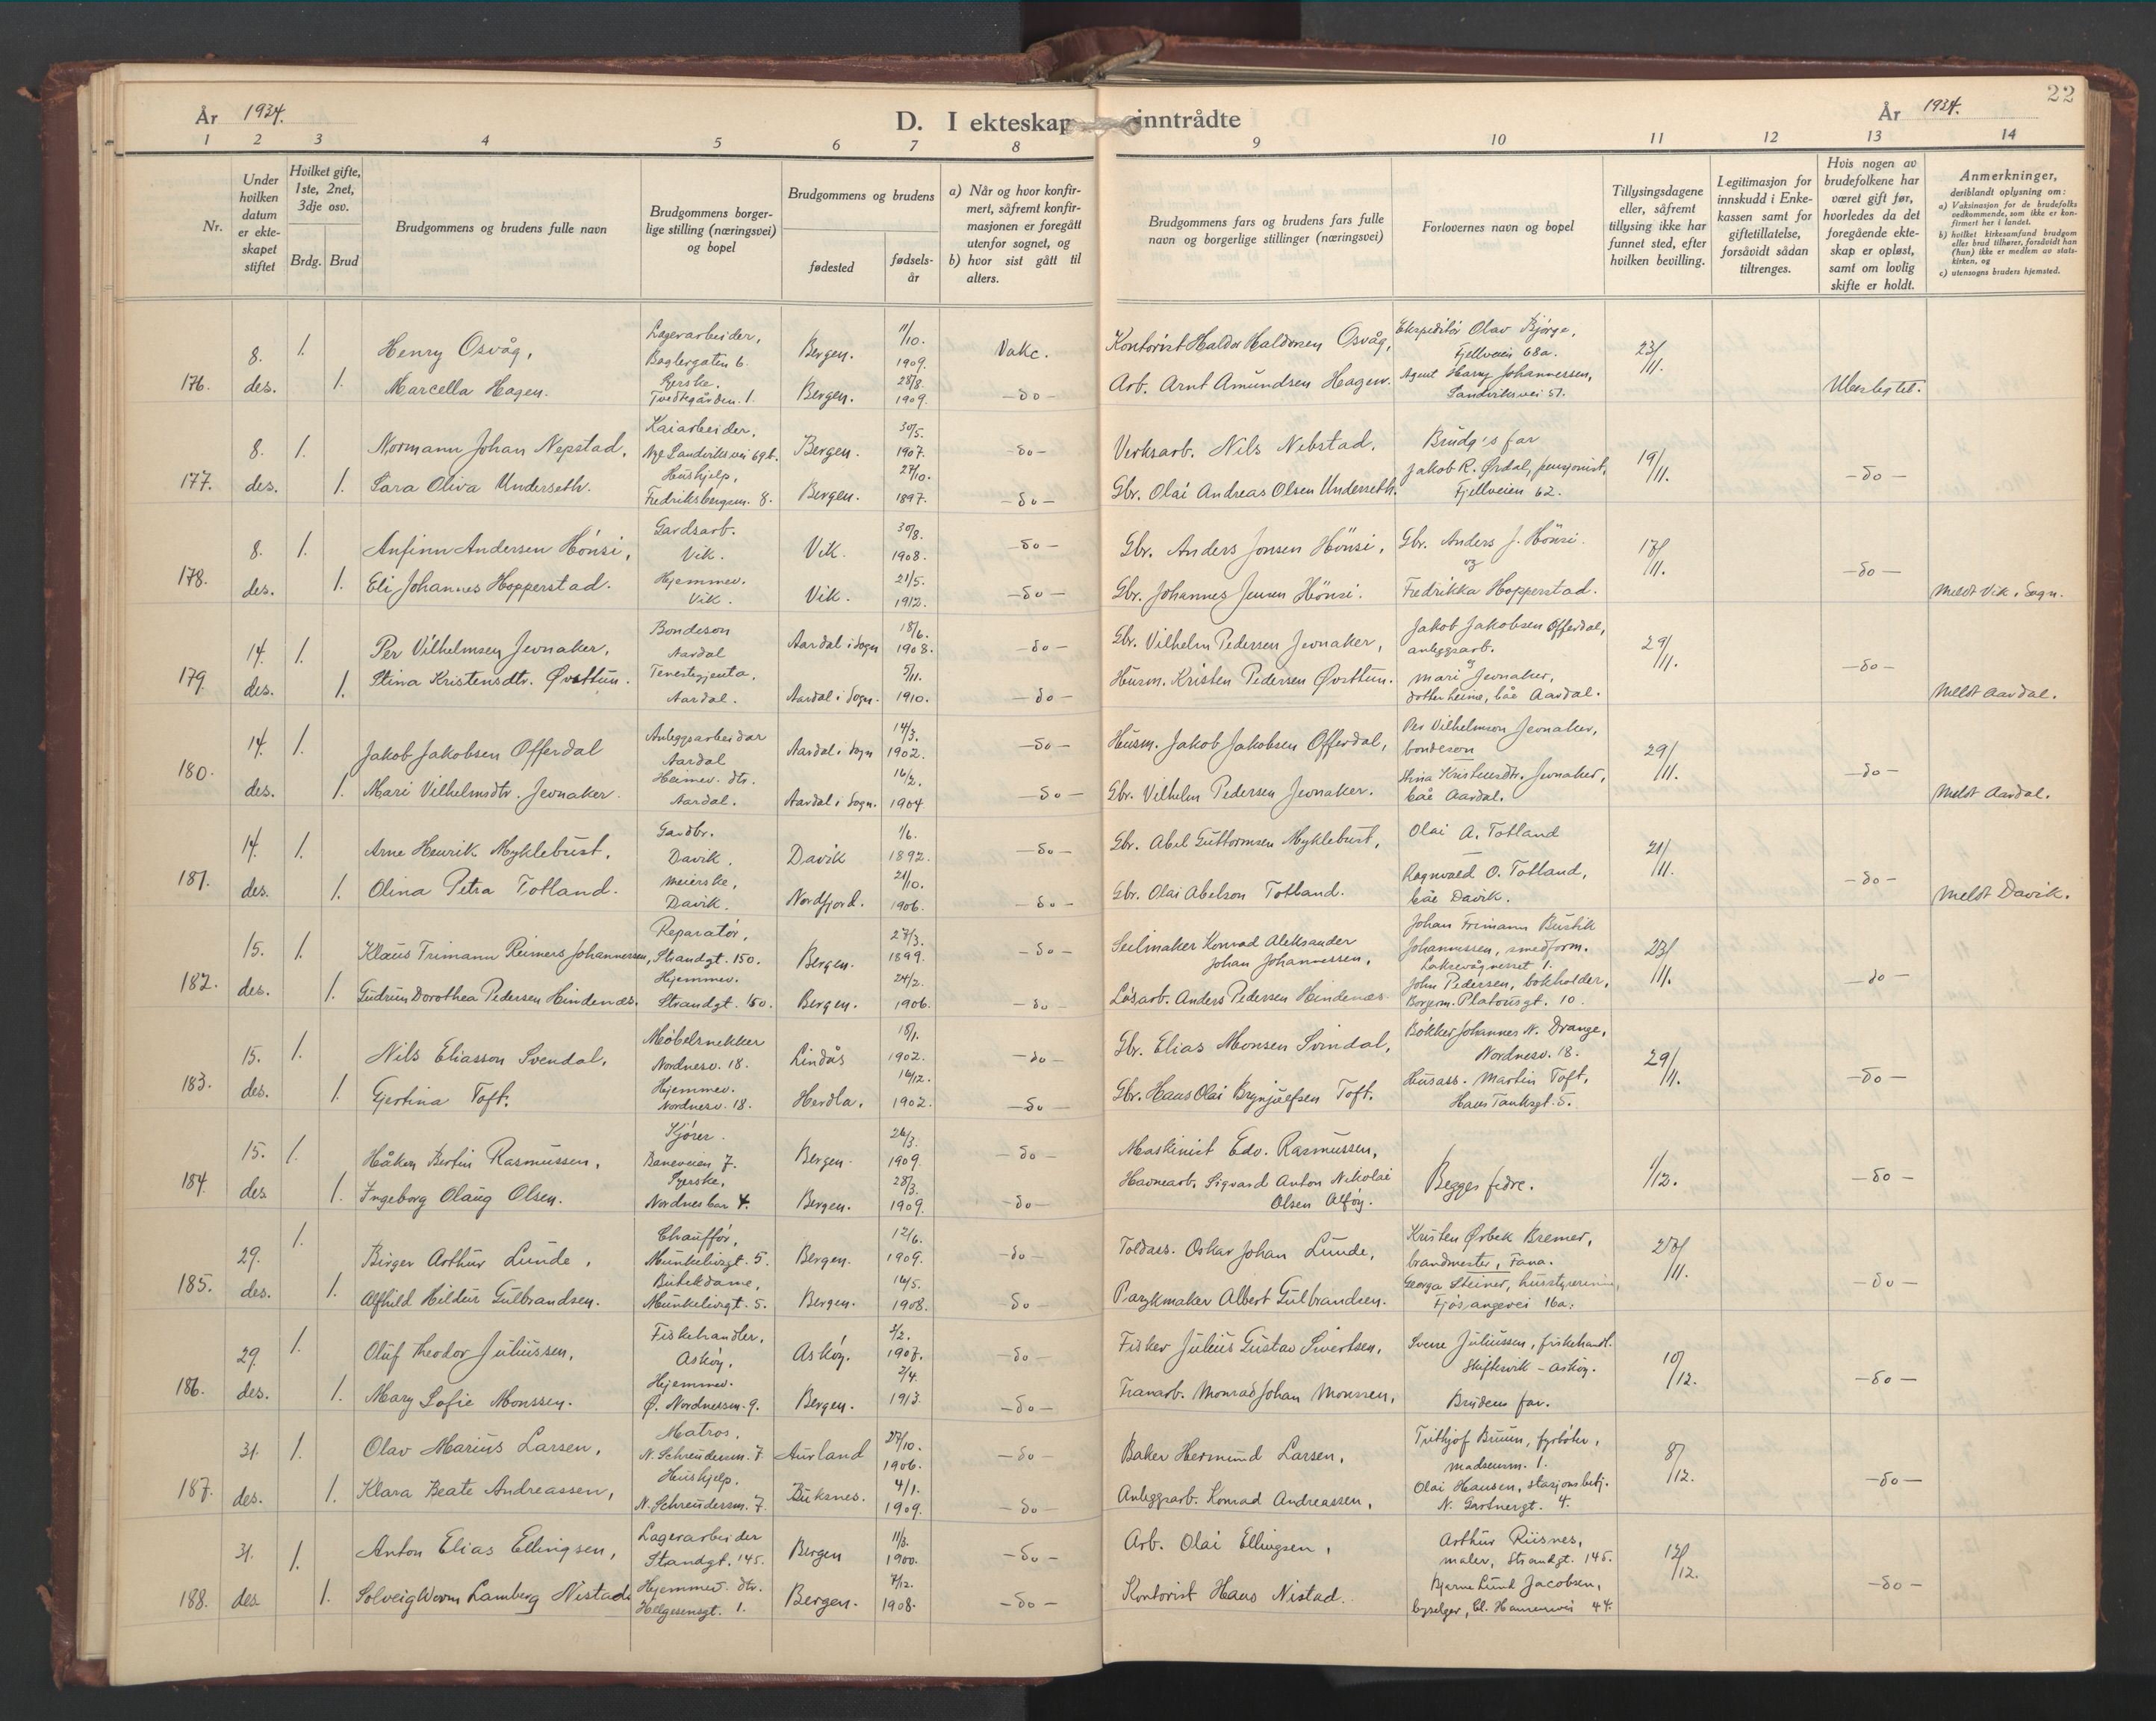 År 1934.
D. I ekteskap inntrådte
År 1934.
22
1 2 3 4 5 6 7 8 9 10 11 12 13 14
Nr.
Under hvilken datum er ekteskapet stiftet
Hvilket gifte, 1ste, 2net, 3dje osv.
Brdg. Brud
Brudgommens og brudens fulle navn
Brudgommens borgerlige stilling (næringsvei) og bopel
Brudgommens og brudens
fødested
fødselsår
a) Når og hvor konfirmert, såfremt konfirmasjonen er foregått utenfor sognet, og
b) hvor sist gått til alters.
Brudgommens fars og brudens fars fulle navn og borgerlige stillinger (næringsvei)
Forlovernes navn og bopel
Tillysingsdagene eller, såfremt tillysing ikke har funnet sted, efter hvilken bevilling.
Legitimasjon for innskudd i Enkekassen samt for giftetillatelse, forsåvidt sådan tiltrenges.
Hvis nogen av brudefolkene har været gift før, hvorledes da det foregående ekteskap er opløst, samt om lovlig skifte er holdt.
Anmerkninger,
deriblandt oplysning om:
a) Vaksinasjon for de brudefolks vedkommende, som ikke er konfirmert her i landet.
b) hvilket kirkesamfund brudgom eller brud tilhører, forsåvidt han (hun) ikke er medlem av statskirken, og
c) utensogns bruders hjemsted.
176. 8. des. 1. Henry Osvåg, Lagerarbeider, Baglergaten 6. Bergen. 11/10. 1909. Vakc. Kontorist Haldor Haldorsen Osvåg, Ekspeditör Olav Bjórge, Fjellveien 68a. 23/11. Uberlegtet.
1. Marcella Hagen. Syerske. Tvedtegården. 1. Bergen. 28/8. 1909. -do- Arb. Arnt Amundsen Hagen. Agent Harry Johannessen, Sandviksvei 51.
177. 8. des. 1. Normann Johan Nepstad, Kaiarbeider, Nye Sandviksvei 69b. Bergen. 30/5. 1907. -do- Verksarb. Nils Nebstad. Brudg's far 19/11. -do-
1. Sara Oliva Underseth. Hushjelp, Fredriksbergsm. 8. Bergen. 27/10. 1897. -do- Gbr. Olai Andreas Olsen Underseth. Jakob R. Ørdal, pensjonist, Fjellveien 62.
178. 8. des. 1. Anfinn Andersen Hönsi, Gardsarb. Vik. Vik. 30/8. 1908. -do- Gbr. Anders Jonsen Hönsi, Gbr. Anders J. Hönsi. og 17/11. -do-
1. Eli Johannes Hopperstad. Hjemmev. Vik. Vik. 21/5. 1912. -do- Gbr. Johannes Jensen Hönsi. Fredrikka Hopperstad. Meldt Vik i Sogn.
179. 14. des. 1. Per Vilhelmsen Jevnaker, Bondeson Aardal Aardal i Sogn 18/6. 1908. -do- Gbr. Vilhelm Pedersen Jevnaker, Jakob Jakobsen Offerdal, anleggsarb. og 29/11. -do-
1. Stina Kristensdtr. Øvsttun. Tenestegjenta, Aardal. Aardal i Sogn. 5/11. 1910. -do- Husm. Kristen Pedersen Øvsttun. Mari Jevnaker, dotter heime, båe Aardal. Meldt Aardal.
180. 14. des. 1. Jakob Jakobsen Offerdal Anleggsarbeidar Aardal Aardal i Sogn 14/3. 1902. -do- Husm. Jakob Jakobsen Offerdal, Per Vilhelmson Jevnaker, bondeson 29/11. -do-
1. Mari Vilhelmsdtr. Jevnaker. Heimev. dtr. Aardal. Aardal i Sogn. 16/2. 1904. -do- Gbr. Vilhelm Pedersen Jevnaker. Stina Kristensdtr. Jevnaker, båe Aardal. Meldt Aardal.
181. 14. des. 1. Arne Henrik Myklebust, Gardbr. Davik. Davik 1/6. 1892. -do- Gbr. Abel Guttormsen Myklebust, Olai A. Totland 21/11. -do-
1. Olina Petra Totland. Meierske, Davik. Nordfjord. 21/10. 1906. -do- Gbr. Olai Abelson Totland. Ragnvald O. Totland, båe Davik. Meldt Davik.
182. 15. des. 1. Klaus Trimann Reimers Johannessen, Reparatör, Strandgt. 150. Bergen. 27/3. 1899. -do- Seilmaker Konrad Aleksander Johan Johannessen, Johan Frimann Bustik Johannessen, smedform. Laksevågnesset 1. 23/11. -do-
1. Gudrun Dorothea Pedersen Hindenæs. Hjemmev. Strandgt. 150. Bergen. 24/2. 1906. -do- Lósarb. Anders Pedersen Hindenæs. John Pedersen, bokholder, Borgerm. Platousgt. 10.
183. 15. des. 1. Nils Eliasson Svendal, Möbelsnekker Nordnesv. 18. Lindås 18/1. 1902. -do- Gbr. Elias Monsen Svindal, Bökker Johannes N. Drange, Nordnesv. 18. 29/11. -do-
1. Gjertina Toft. Hjemmev. Nordnesv. 18. Herdla. 16/12. 1902. -do- Gbr. Hans Olai Brynjulfsen Toft. Husass. Martin Toft, Hans Tanksgt. 5.
184. 15. des 1. Håkon Bertin Rasmussen, Kjörer. Baneveien 7. Bergen. 26/3. 1909. -do- Maskinist Edv. Rasmussen, Begges fedre. 1/12. -do-
1. Ingeborg Olaug Olsen. Syerske, Nordnesbar 4. Bergen. 28/3. 1909. -do- Havnearb. Sigvard Anton Nikolai Olsen Alföy.
185. 29. des. 1. Birger Arthur Lunde, Chauffør, Munkelivsgt. 5. Bergen. 12/6. 1909. -do- Toldass. Oskar Johan Lunde, Kristen Ørbek Bremer, brandmester, Fana. 27/11. -do-
1. Alfhild Hildur Gulbrandsen. Butikdame, Munkelivsgt. 5. Bergen. 16/5. 1908. do- Parykmaker Albert Gulbrandsen. Georga Steiner, husstyrerinne, Fjósangervei 16a.
186. 29. des. 1. Oluf Theodor Juliussen, Fiskehandler, Asköy. Asköy. 3/2. 1907. -do- Fisker Julius Gustav Sivertsen, Sverre Juliussen, fiskehandl. Skiftesvik - Asköy. 10/12. -do-
1. Mary Sofie Monssen. Hjemmev. Ø. Nordnessm. 9. Bergen. 2/4. 1913. -do- Tranarb. Monrad Johan Monssen, Brudens far.
187. 31. des. 1. Olav Marius Larsen, Matros. N. Schreudersm. 7 Aurland 27/10. 1906. -do- Baker Hermund Larsen, Trithjof Bruun, fyrböter, Madsensm. 1. 8/12. -do-
1. Klara Beate Andreassen, Hushjelp. N. Schreudersm. 7. Buksnes. 4/1. 1909. -do- Anleggsarb. Konrad Andreassen, Olai Hansen, stasjonsbetj. N. Gartnergt. 4.
188. 31. des 1. Anton Elias Ellingsen, Lagerarbeider Standgt. 145. Bergen 11/3. 1900. -do- Arb. Olai Ellingsen, Arthur Riisnes, maler, Strandgt. 145. 12/12. -do-
1. Solveig Worm Lamberg Nistad Hjemmev. dtr. Helgesensgt. 1. Bergen. 7/12. 1908. -do- Kontorist Hans Nistad. Bjerne Lund Jacobsen, byselger, Cl. Hansensvei 44.